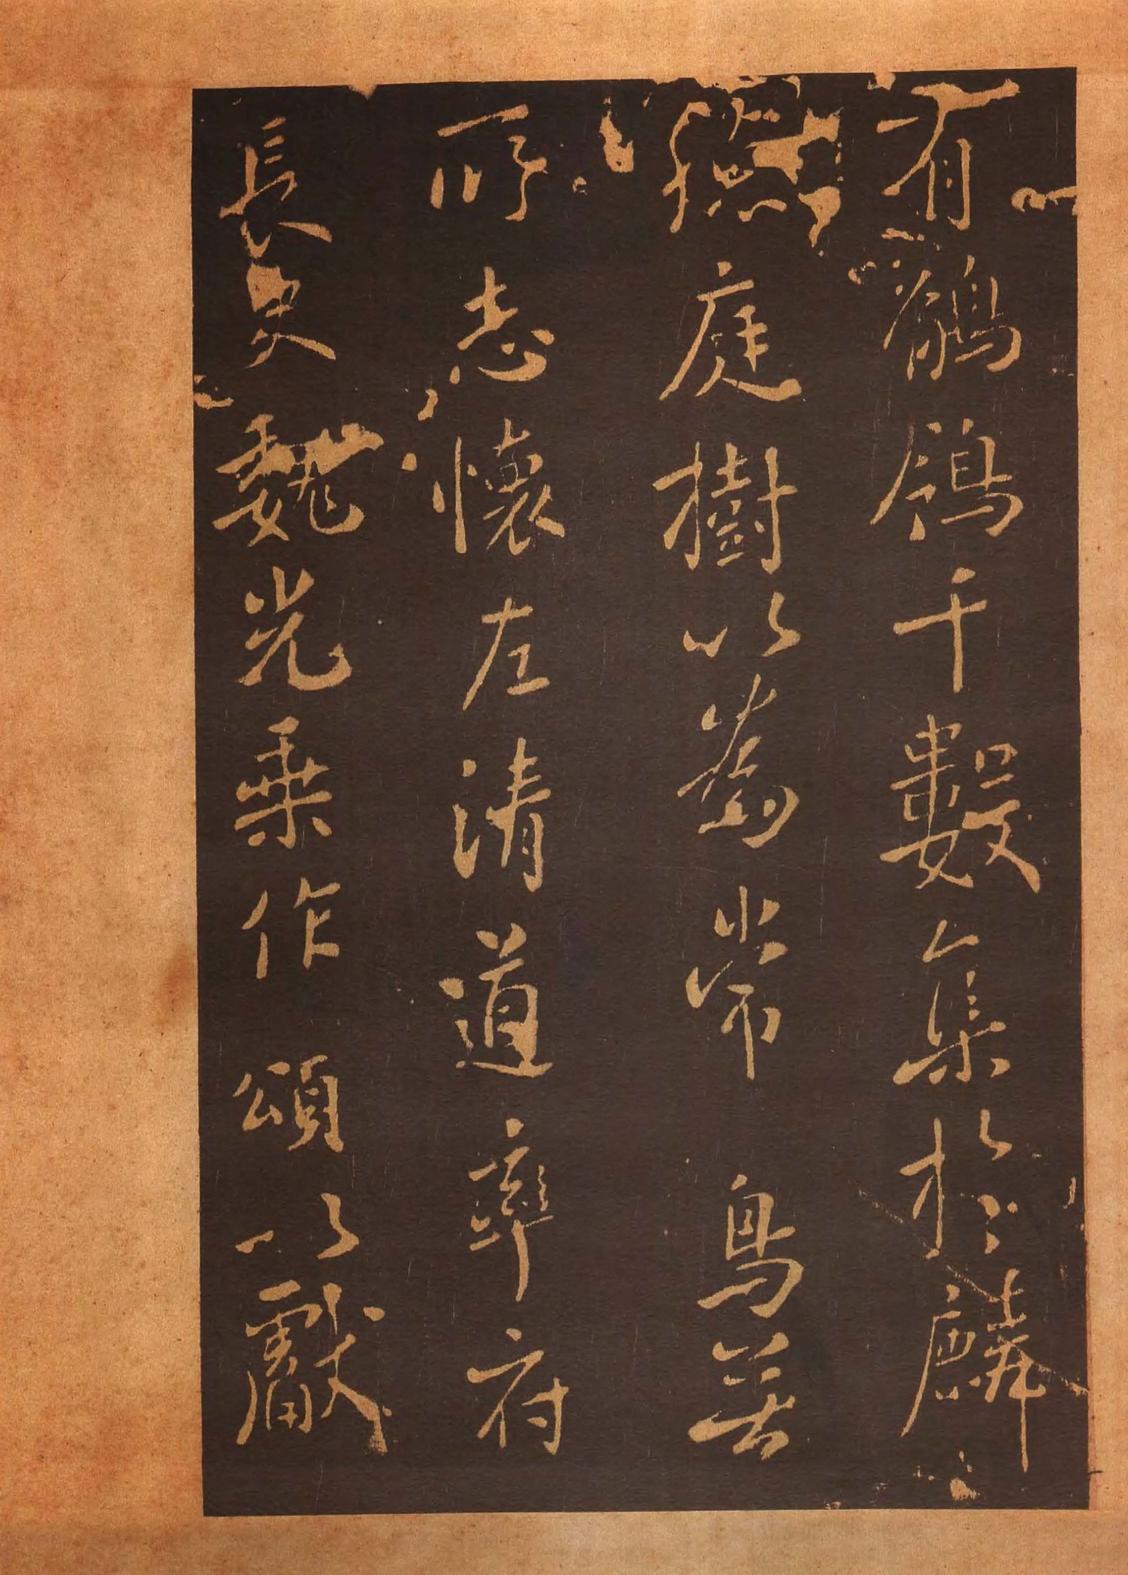 有鶺鴒千數集於麟
德庭樹以爲常鳥無
所志懷左清道率府
長史魏光乘作頌以獻